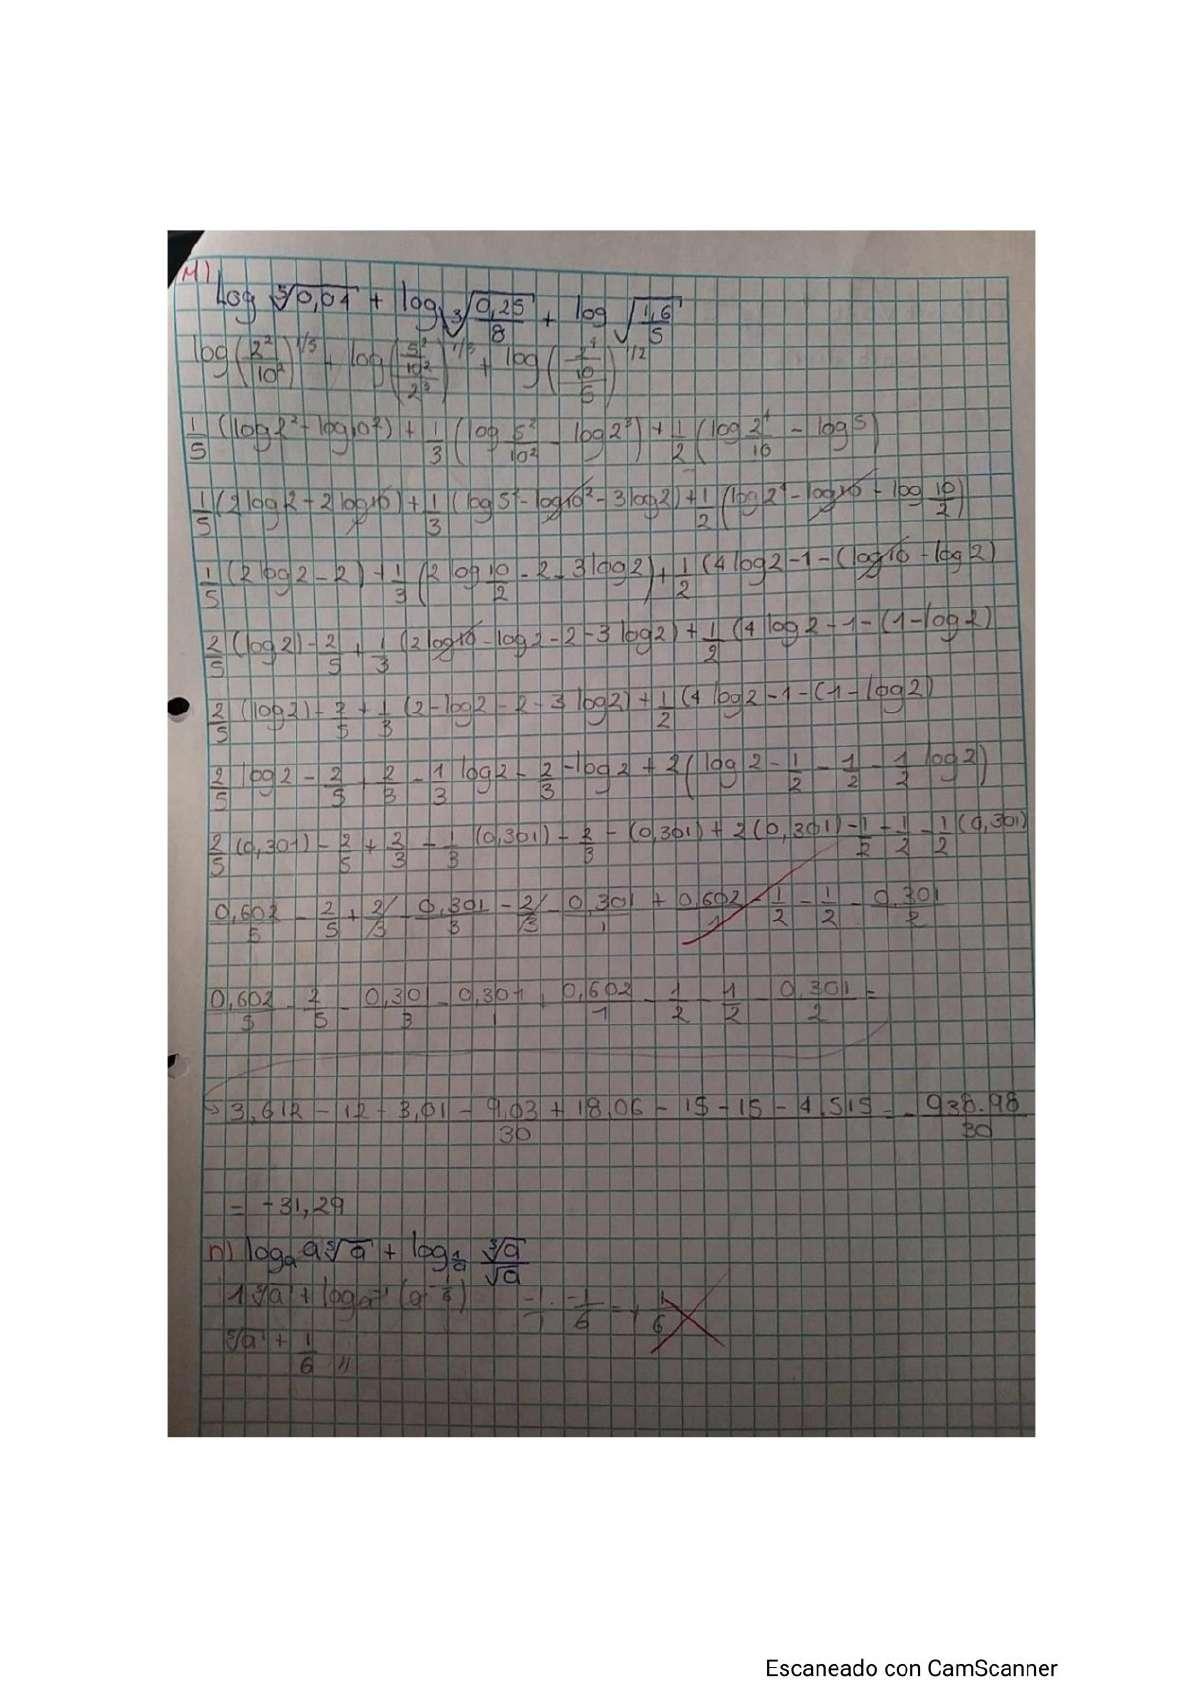 M)
log ⁵√0,04 + log ³√(0,25/8) + log √(1,6/5)
log (2²/10²)^1/5 + log ((5²/10²)/2³)^1/3 + log ((2⁴/10)/5)^1/2
1/5 (log2² - log10²) + 1/3 (log 5²/10² - log2³) + 1/2 (log 2⁴/10 - log5)
1/5 (2log2 - 2log10) + 1/3 (log5² - log10² - 3log2) + 1/2 (log2⁴ - log10 - log 10/2)
1/5 (2log2 - 2) + 1/3 (2 log 10/2 - 2 - 3log2) + 1/2 (4log2 - 1 - (log10 - log2)
2/5 (log2) - 2/5 + 1/3 (2log10 - log2 - 2 - 3log2) + 1/2 (4log2 - 1 - (1 - log2)
2/5 (log2) - 2/5 + 1/3 (2 - log2 - 2 - 3log2) + 1/2 (4log2 - 1 - (1 - log2)
2/5 log2 - 2/5 + 2/3 - 1/3 log2 - 2/3 - log2 + 2(log2 - 1/2 - 1/2 - 1/2 log2)
2/5 (0,301) - 2/5 + 2/3 - 1/3 (0,301) - 2/3 - (0,301) + 2(0,301) - 1/2 - 1/2 - 1/2 (0,301)
0,602/5 - 2/5 + 2/3 - 0,301/3 - 2/3 - 0,301/1 + 0,602/1 - 1/2 - 1/2 - 0,301/2
0,602/5 - 2/5 - 0,301/3 - 0,301/1 + 0,602/1 - 1/2 - 1/2 - 0,301/2 =
→ (3,612 - 12 - 3,01 - 9,03 + 18,06 - 15 - 15 - 4,515)/30 = - 938.98/30
= -31,29
n) logₐ a⁵√a + log₁/ₐ ³√a/√a
1⁵√a + logₐ⁻¹ (a^-1/6) -1/1 · -1/6 = + 1/6
⁵√a + 1/6 //
Escaneado con CamScanner